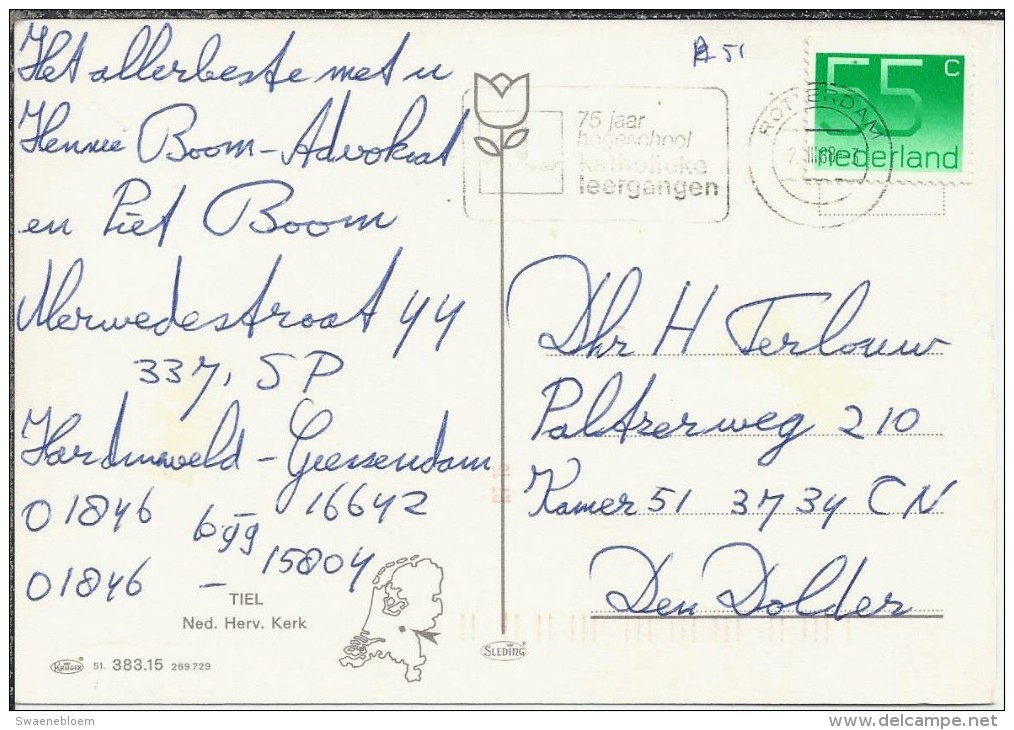 Het allerbeste met u
Hennie Boom-Advokaat
en Piet Boom
Merwedestraat 44
SP
Hardinxveld - Giessendam
01846 - 16642
b.g.g.
01846 - 15804
TIEL
Ned. Herv. Kerk
KRÜGER
51. 383.15 269729
51
75 jaar
hogeschool
katholieke
leergangen
ROTTERDAM
55 c
Nederland
Dhr H Terlouw
Paltzerweg 210
Kamer 51 3734 CN
Den Dolder
SLEDING
Swaenebloem
www.delcampe.net